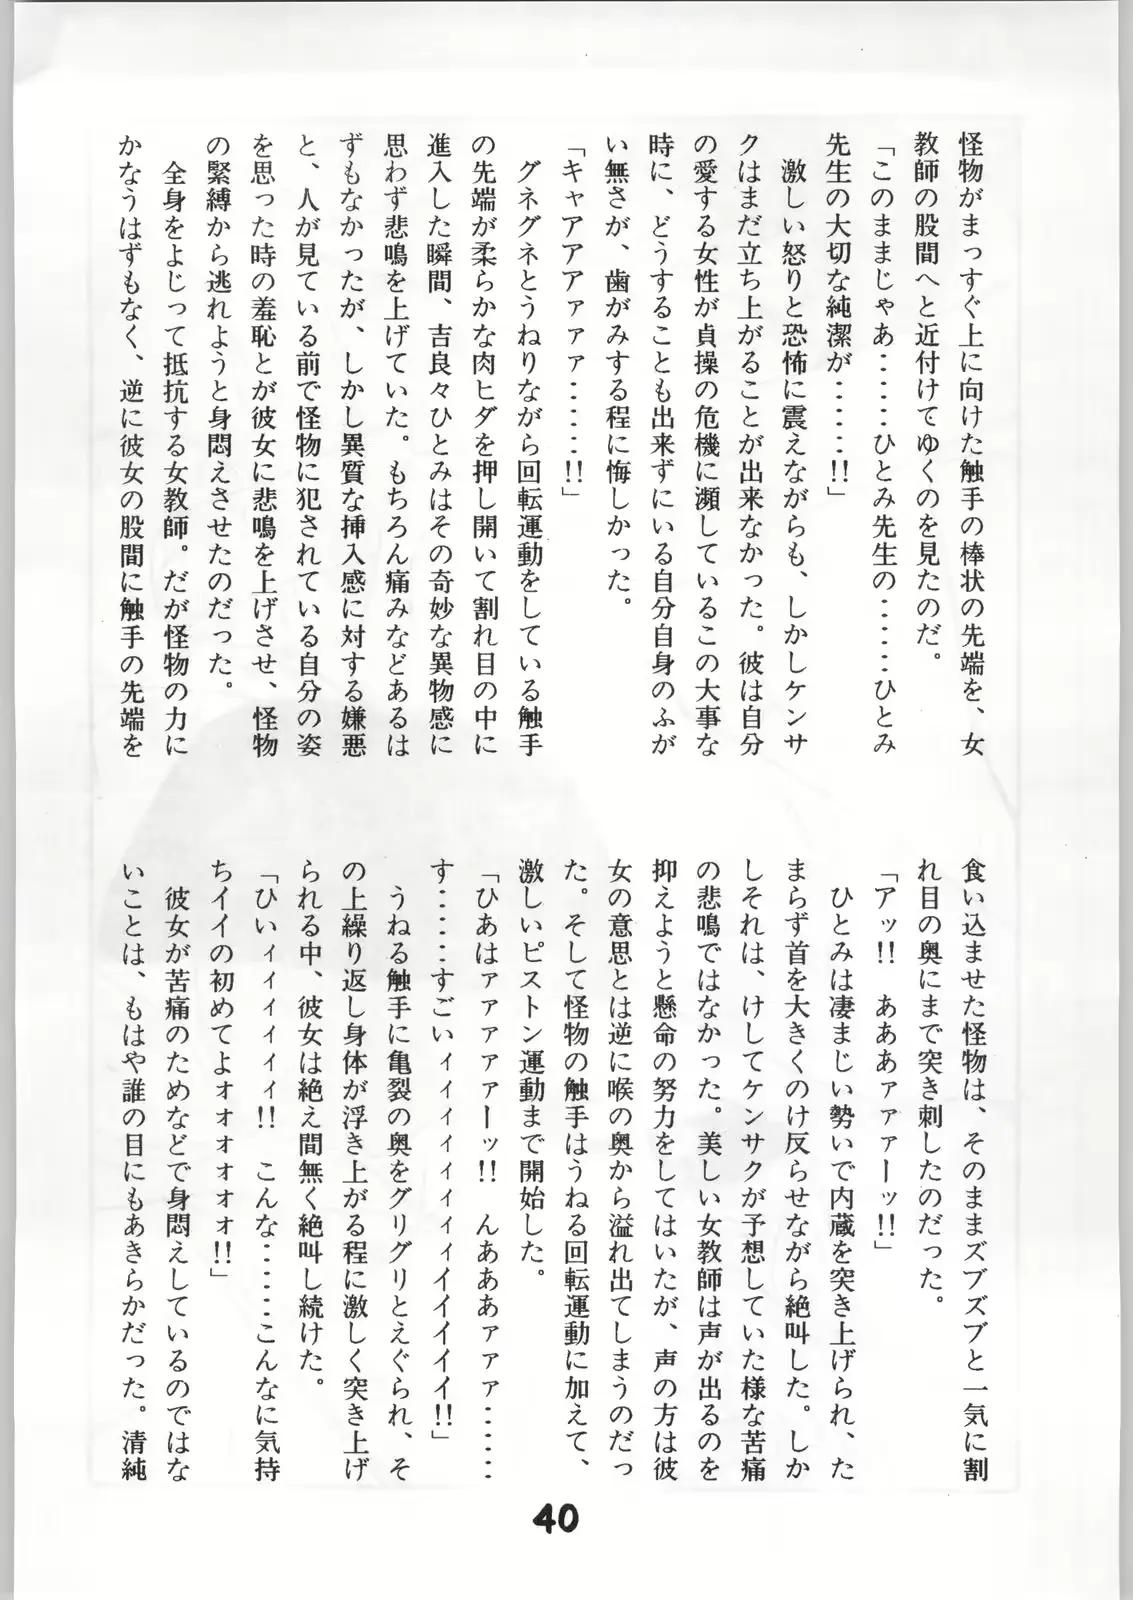 怪物がまっすぐ上に向けた触手の棒状の先端を、女
教師の股間へと近付けてゆくのを見たのだ。
「このままじゃあ‥‥‥ひとみ先生の‥‥‥ひとみ
先生の大切な純潔が‥‥‥!!」
激しい怒りと恐怖に震えながらも、しかしケンサ
クはまだ立ち上がることが出来なかった。彼は自分
の愛する女性が貞操の危機に瀕しているこの大事な
時に、どうすることも出来ずにいる自分自身のふが
い無さが、歯がみする程に悔しかった。
「キャアアアァァァ‥‥‥!!」
グネグネとうねりながら回転運動をしている触手
の先端が柔らかな肉ヒダを押し開いて割れ目の中に
進入した瞬間、吉良々ひとみはその奇妙な異物感に
思わず悲鳴を上げていた。もちろん痛みなどあるは
ずもなかったが、しかし異質な挿入感に対する嫌悪
と、人が見ている前で怪物に犯されている自分の姿
を思った時の羞恥とが彼女に悲鳴を上げさせ、怪物
の緊縛から逃れようと身悶えさせたのだった。
全身をよじって抵抗する女教師。だが怪物の力に
かなうはずもなく、逆に彼女の股間に触手の先端を
食い込ませた怪物は、そのままズブズブと一気に割
れ目の奥にまで突き刺したのだった。
「アッ!!　あああァァァーッ!!」
ひとみは凄まじい勢いで内蔵を突き上げられ、た
まらず首を大きくのけ反らせながら絶叫した。しか
しそれは、けしてケンサクが予想していた様な苦痛
の悲鳴ではなかった。美しい女教師は声が出るのを
抑えようと懸命の努力をしてはいたが、声の方は彼
女の意思とは逆に喉の奥から溢れ出てしまうのだっ
た。そして怪物の触手はうねる回転運動に加えて、
激しいピストン運動まで開始した。
「ひあはァァァァーッ!!　んあああァァァ‥‥‥
す‥‥‥すごいィィィィィィィイイイイイ!!」
うねる触手に亀裂の奥をグリグリとえぐられ、そ
の上繰り返し身体が浮き上がる程に激しく突き上げ
られる中、彼女は絶え間無く絶叫し続けた。
「ひいィィィィィィ!!　こんな‥‥‥こんなに気持
ちイイの初めてよォォォォォォ!!」
彼女が苦痛のためなどで身悶えしているのではな
いことは、もはや誰の目にもあきらかだった。清純
40